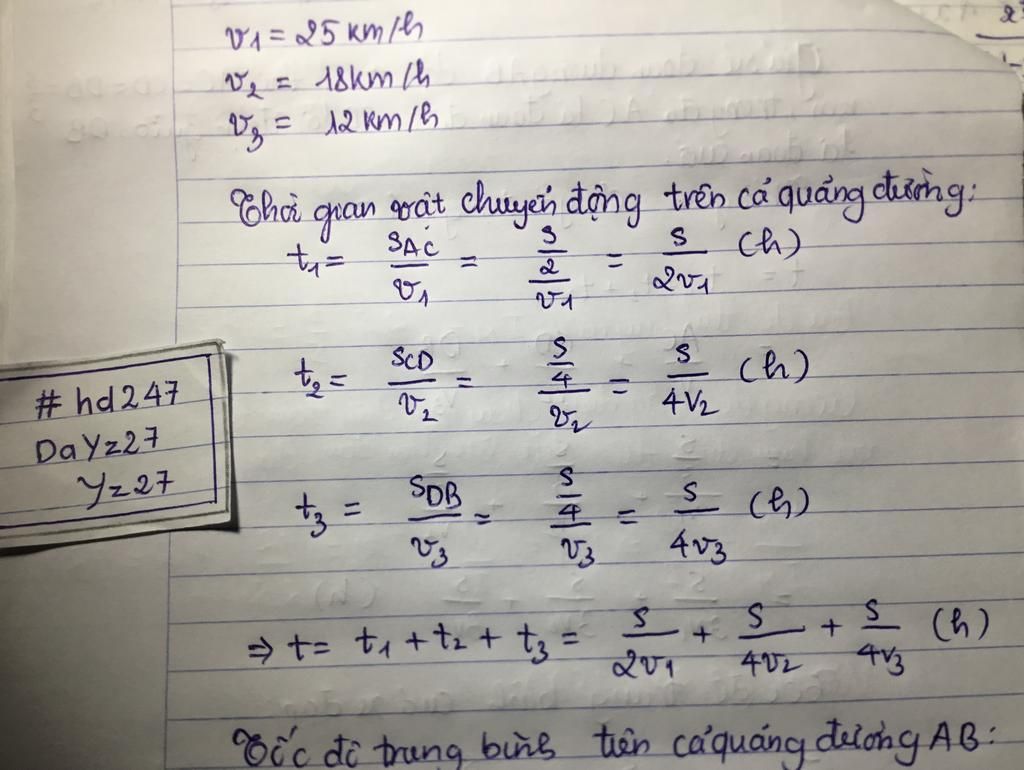 v1 = 25 km/h
v2 = 18km/h
v3 = 12 km/h
Thời gian vật chuyển động trên cả quảng đường:
t1 = SAC/v1 = (S/2)/v1 = S/2v1 (h)
t2 = SCD/v2 = (S/4)/v2 = S/4v2 (h)
t3 = SDB/v3 = (S/4)/v3 = S/4v3 (h)
⇒ t = t1 + t2 + t3 = S/2v1 + S/4v2 + S/4v3 (h)
Tốc độ trung bình trên cả quảng đường AB:
# hd247
DaYz27
Yz27